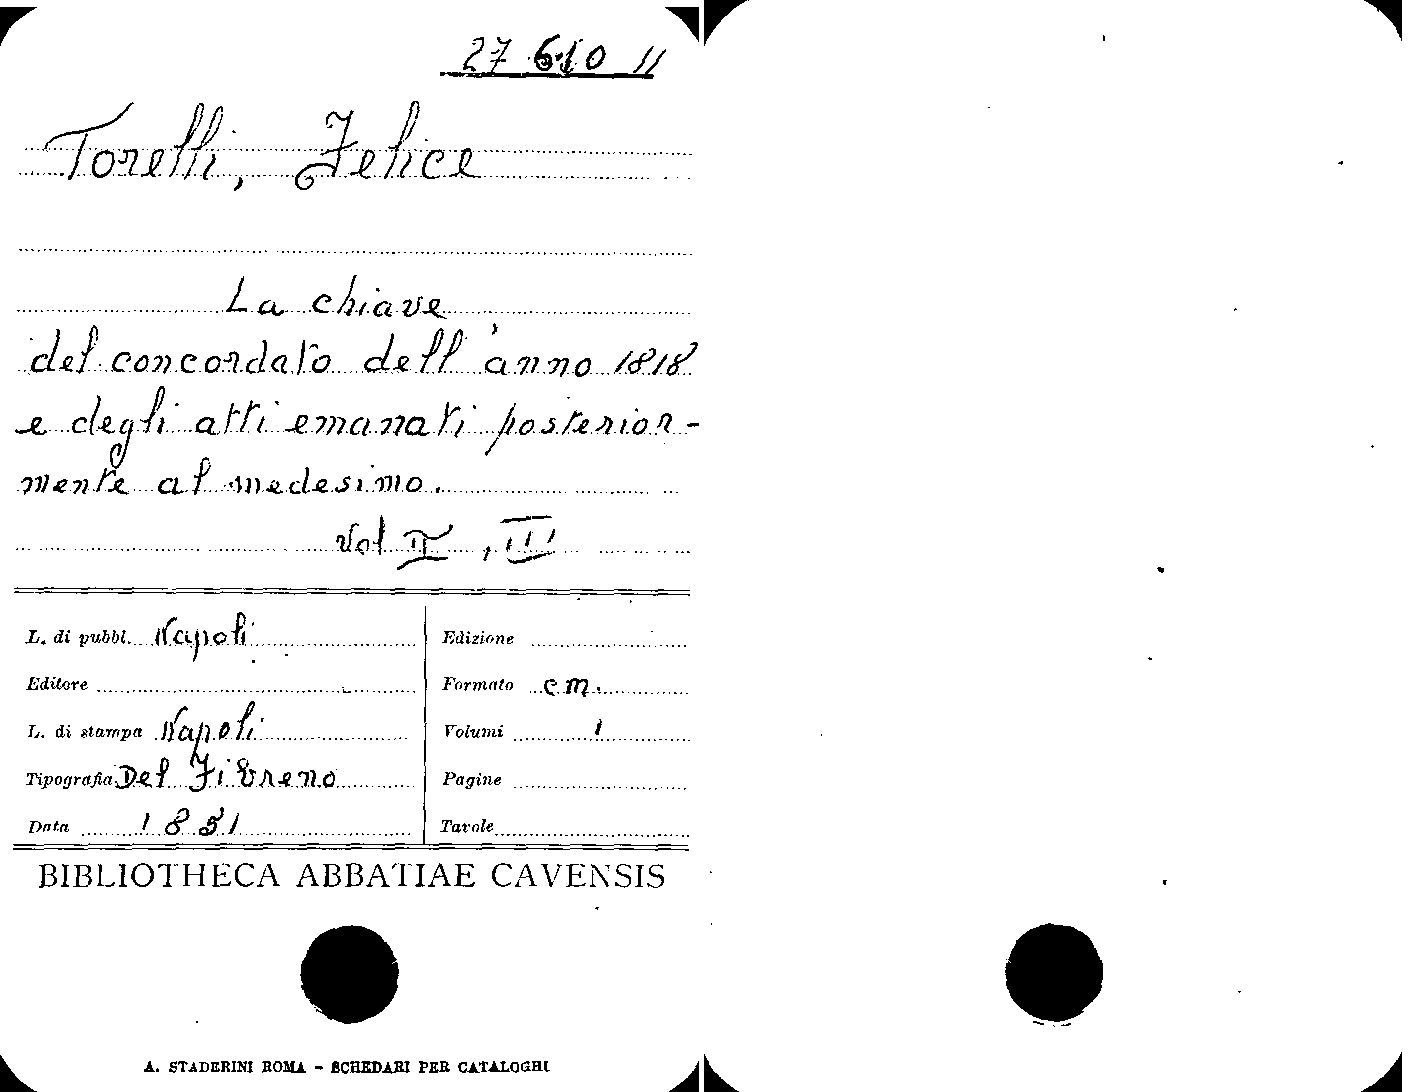 27 610 11
Torelli, Felice
La chiave
del concordato dell'anno 1818
e degli atti emanati posterior-
mente al medesimo.
Vol II, III
L. di pubbl. Napoli
Editore
L. di stampa Napoli
Tipografia Del Fibreno
Data 1851
Edizione
Formato cm.
Volumi 1
Pagine
Tavole
BIBLIOTHECA ABBATIAE CAVENSIS
A. STADERINI ROMA - SCHEDARI PER CATALOGHI